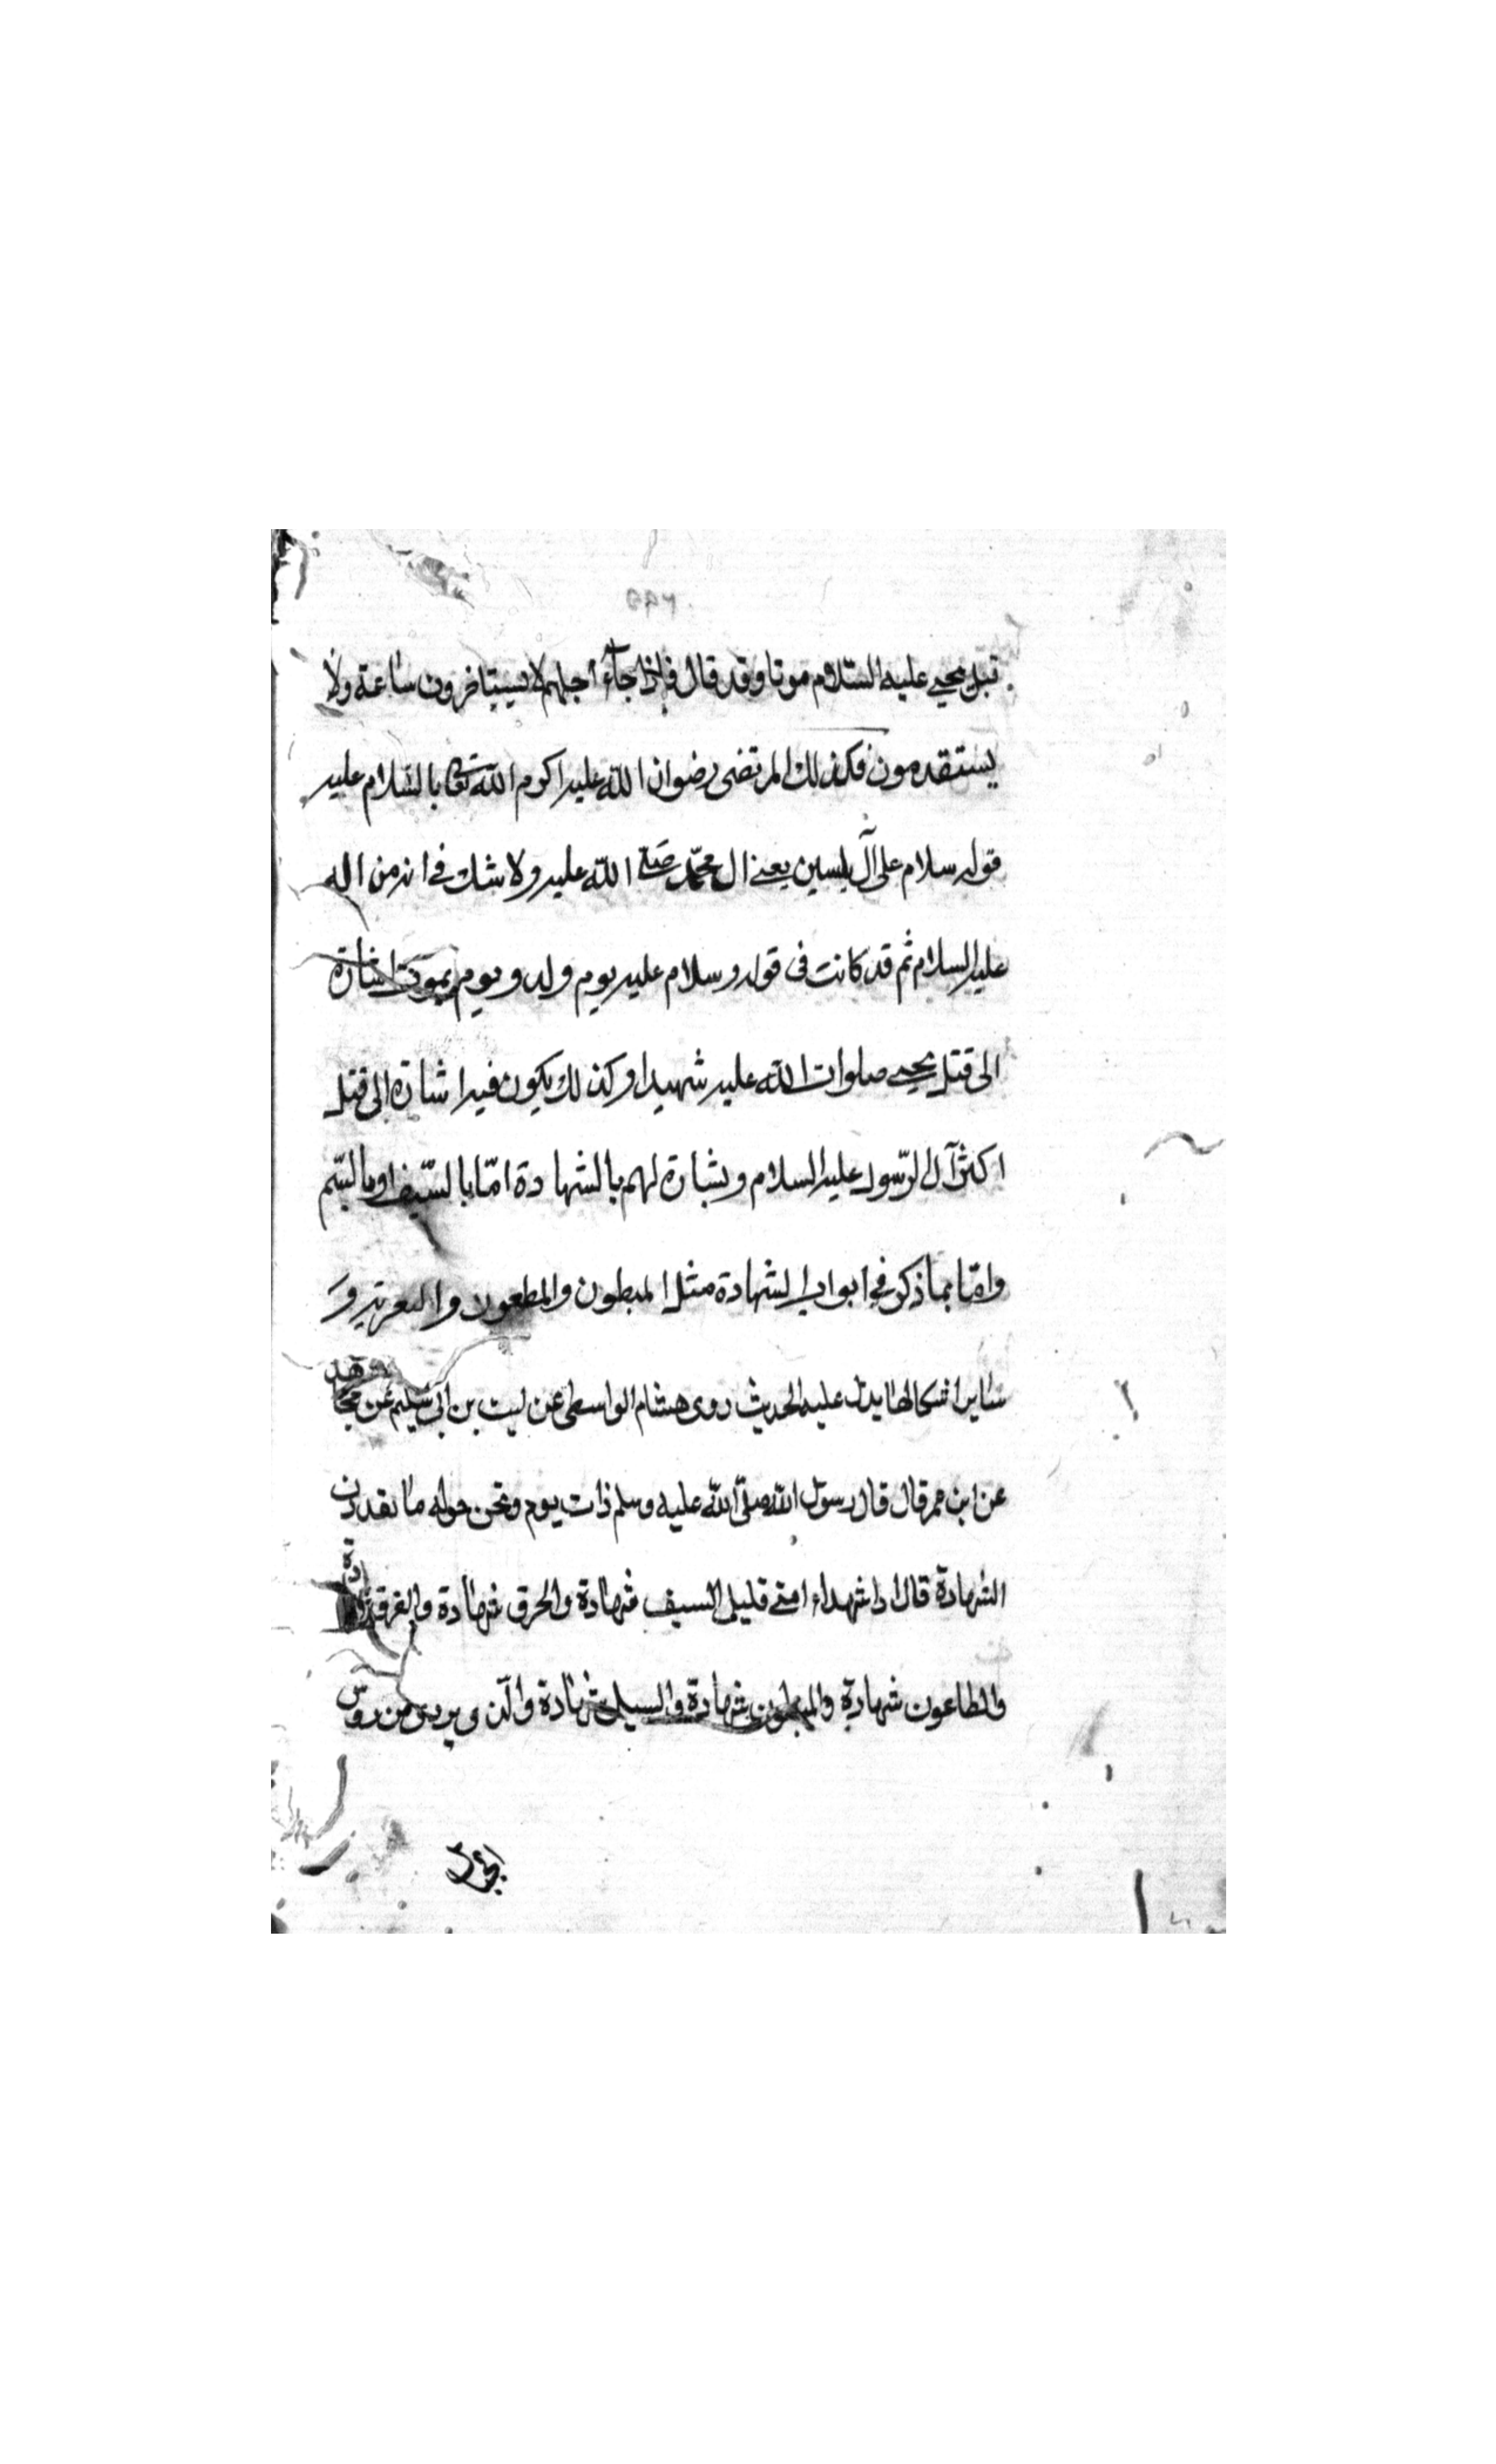 ٢٩٥
قبل يحيى عليه السلام موتا وقد قال فاذا جاء اجلهم لا يستاخرون ساعة ولا
يستقدمون فكذلك المرتضى رضوان الله عليه اكرم الله تعالى بالسلام عليه
قوله سلام على آل يلسين يعني ال محمد صلى الله عليه ولا شك في انه من اله
عليه السلام ثم قد كانت فى قوله وسلام عليه يوم ولد ويوم يموت اشارة
الى قتل يحيى صلوات الله عليه شهيدا وكذلك يكون فيه اشارة الى قتل
اكثر آل الرسول عليه السلام وبشارة لهم بالشهادة امّا بالسّيف او بالسّم
وامّا بما ذكر في ابواب الشهادة مثل المبطون والمطعون و
ساير اشكالها يدل عليه الحديث روى هشام الواسطى عن ليث بن ابي سليم عن مجاهد
عن ابن عمر قال قال رسول الله صلى الله عليه وسلم ذات يوم ونحن حوله ما تعدون
الشهادة قال اذا شهداء امتي قليل السيف شهادة والحرق شهادة والغرق شهادة
والطاعون شهادة والمبطون شهادة والسيل شهادة والذى يردى من روس
الجبال